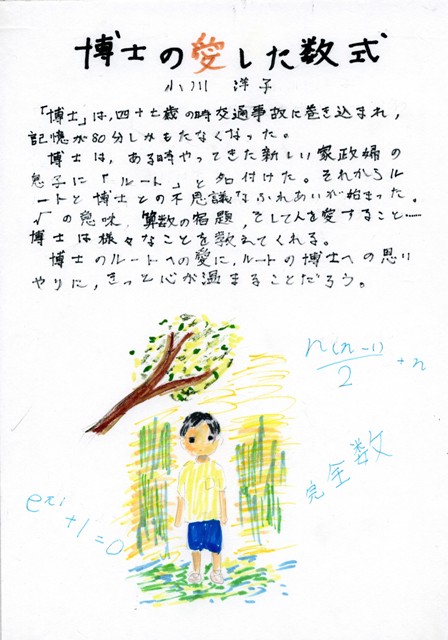 博士の愛した数式
小川 洋子
「博士」は,四十七歳の時交通事故に巻き込まれ,
記憶が80分しかもたなくなった。
博士は,ある時やってきた新しい家政婦の
息子に「ルート」と名付けた。それからル
ートと博士との不思議なふれあいが始まった。
√の意味,算数の宿題,そして人を愛すること……
博士は様々なことを教えてくれる。
博士のルートへの愛に,ルートの博士への思い
やりに,きっと心が温まることだろう。
n(n-1)/2 +n
完全数
e^πi +1=0